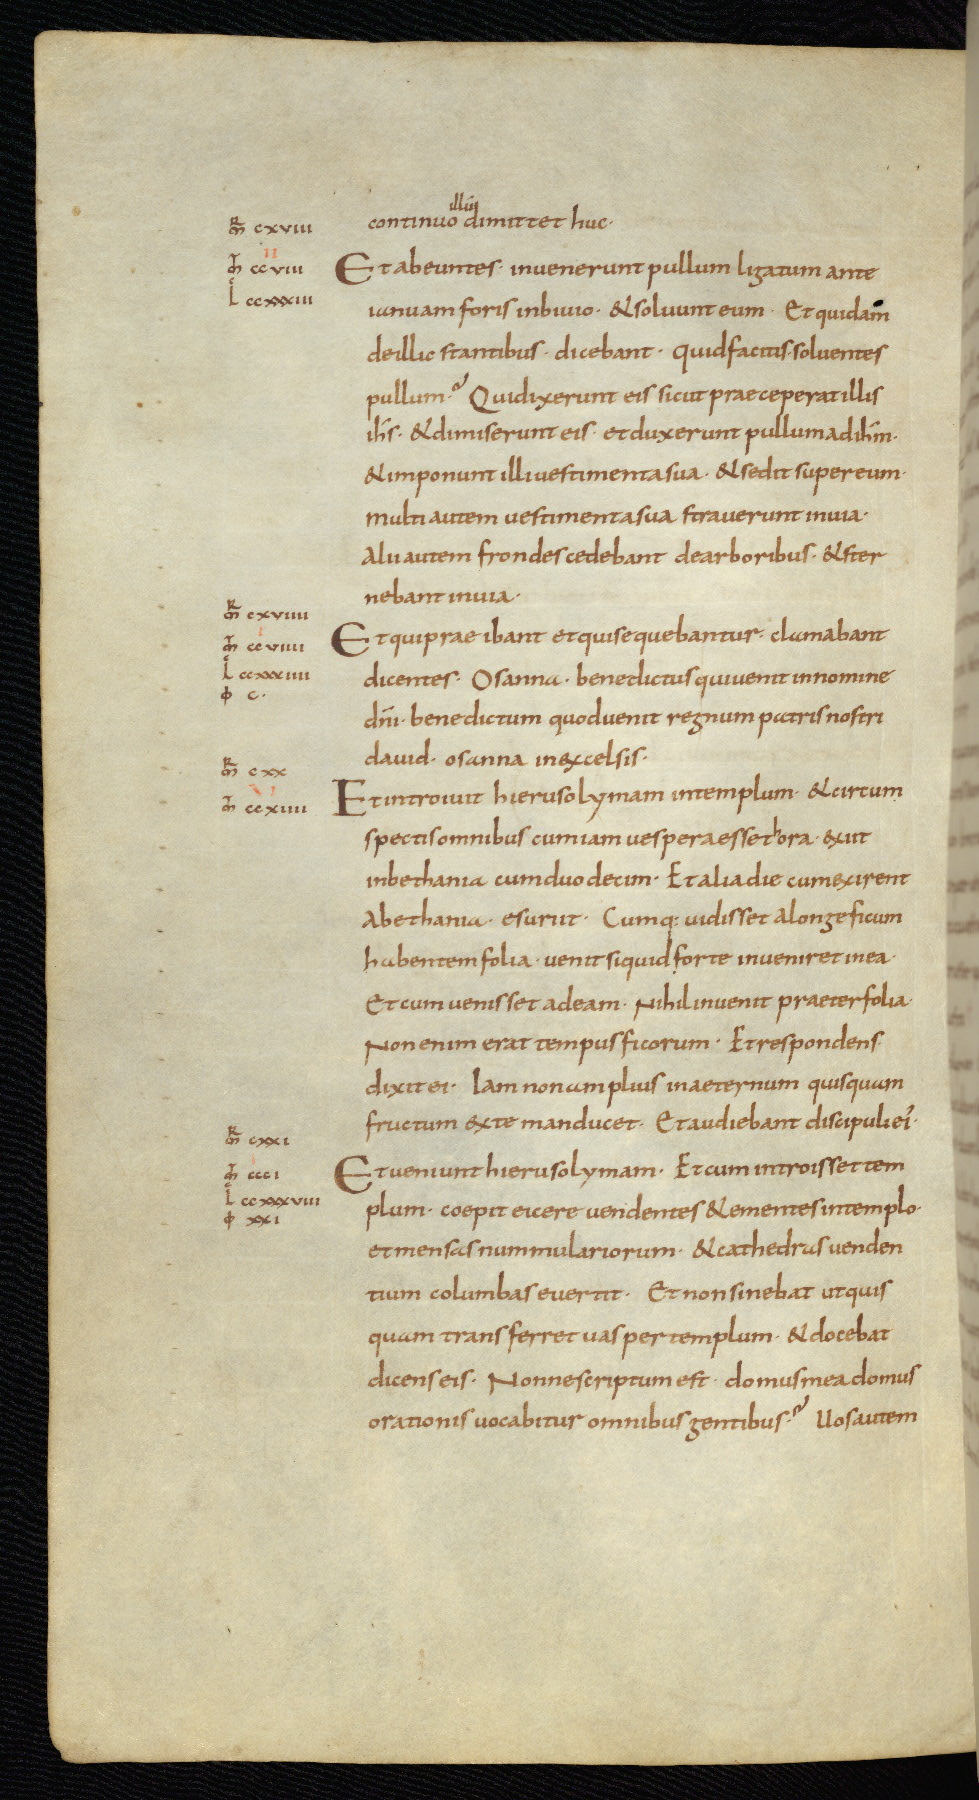 illū
continuo dimittet huc·
mr̄ cxviii
ii
mt̄ ccviii
l ccxxxiii
Et abeuntes· invenerunt pullum ligatum ante
ianuam foris inbivio· &solvunt eum· Et quidam
deillic stantibus· dicebant· quidfacitis·solventes
pullum·? Quidixerunt eis sicut praeceperat illis
ihs̄· &dimiserunt eis· et duxerunt pullum adihm̄·
&imponunt illi vestimenta sua· &sedit super eum·
multi autem vestimenta sua straverunt invia·
alii autem frondes cedebant dearboribus· &ster
nebant invia·
mr̄ cxviiii
i
mt̄ ccviiii
l ccxxxiiii
φ c·
Et quiprae ibant et quisequebantur· clamabant
dicentes· Osanna· benedictus quivenit innomine
dnī· benedictum quodvenit regnum patris nostri
david· osanna inexcelsis·
mr̄ cxx
vi
mt̄ ccxiiii
Et introivit hierusolymam intemplum· &circum
spectis omnibus cum iam vespera esset hora· exiit
inbethania cum duodecim· Et alia die cum exirent
abethania· esuriit· Cumq; vidisset alonge ficum
habentem folia· venit siquid forte inveniret inea·
Et cum venisset adeam· Nihil invenit praeter folia·
Non enim erat tempus ficorum· Et respondens
dixit ei· Iam non amplius inaeternum quisquam
fructum exte manducet· Et audiebant discipuli ei'·
mr̄ cxxi
i
mt̄ ccci
l ccxxxviii
φ xxi
Et veniunt hierusolymam· Et cum introisset tem
plum· coepit eicere vendentes &ementes intemplo·
et mensas nummulariorum· &cathedras venden
tium columbas evertit· Et non sinebat ut quis
quam transferret vas per templum· &docebat
dicens eis· Nonne scriptum est· domus mea domus
orationis vocabitur omnibus gentibus·? Vos autem